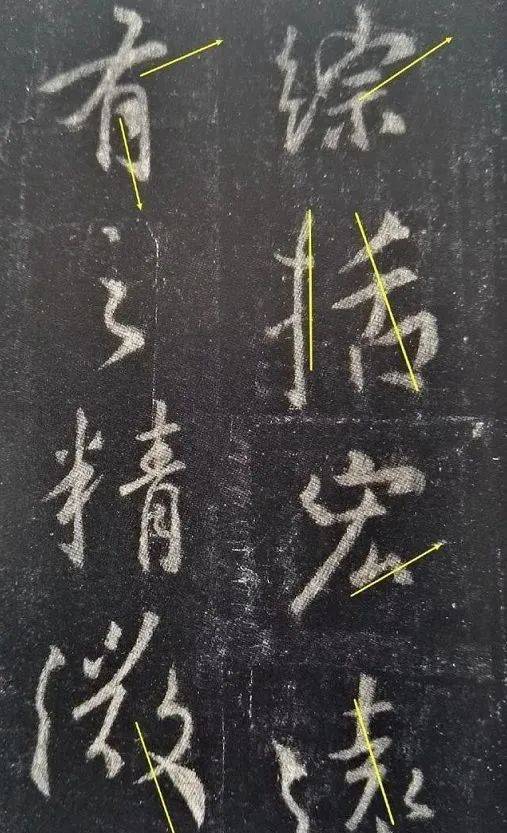 综括宏遠
有之精微